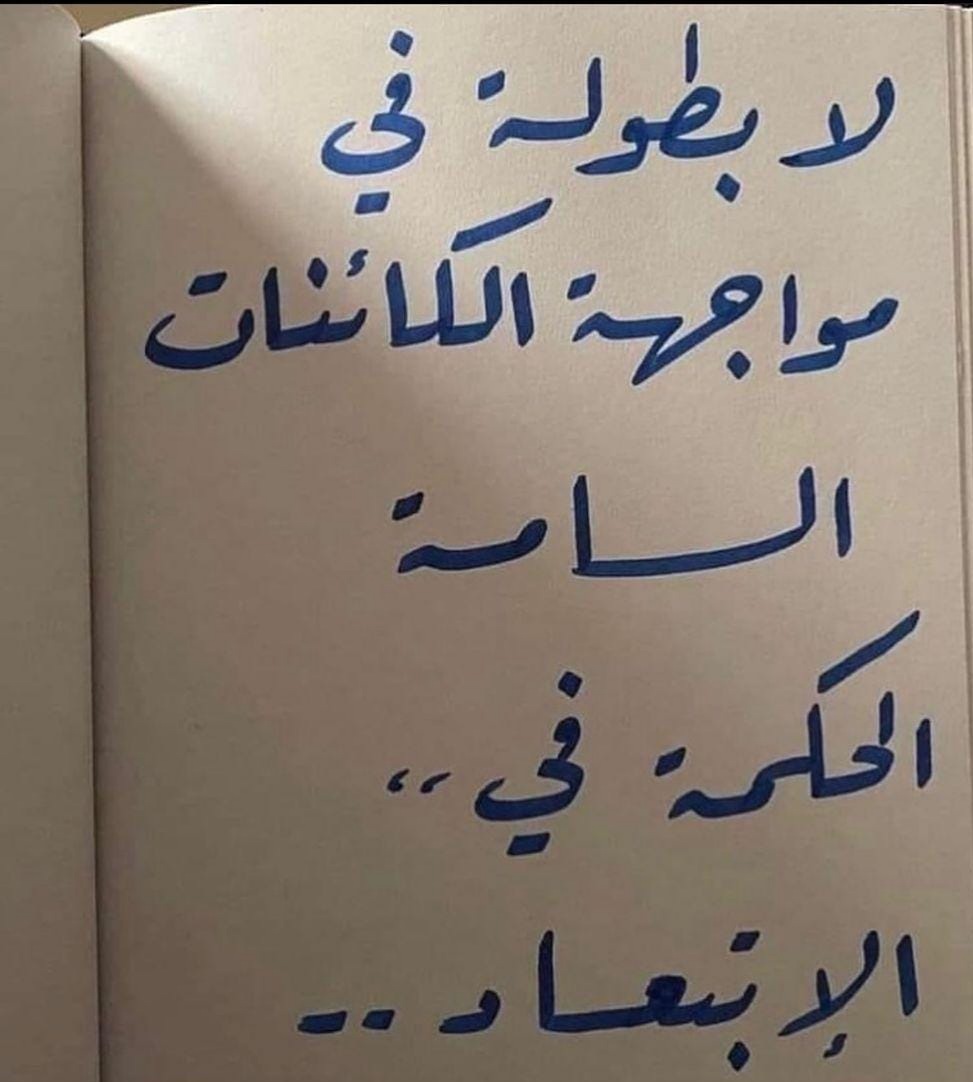 لا بطولة في
مواجهة الكائنات
السامة
الحكمة في ،،
الإبتعاد ..